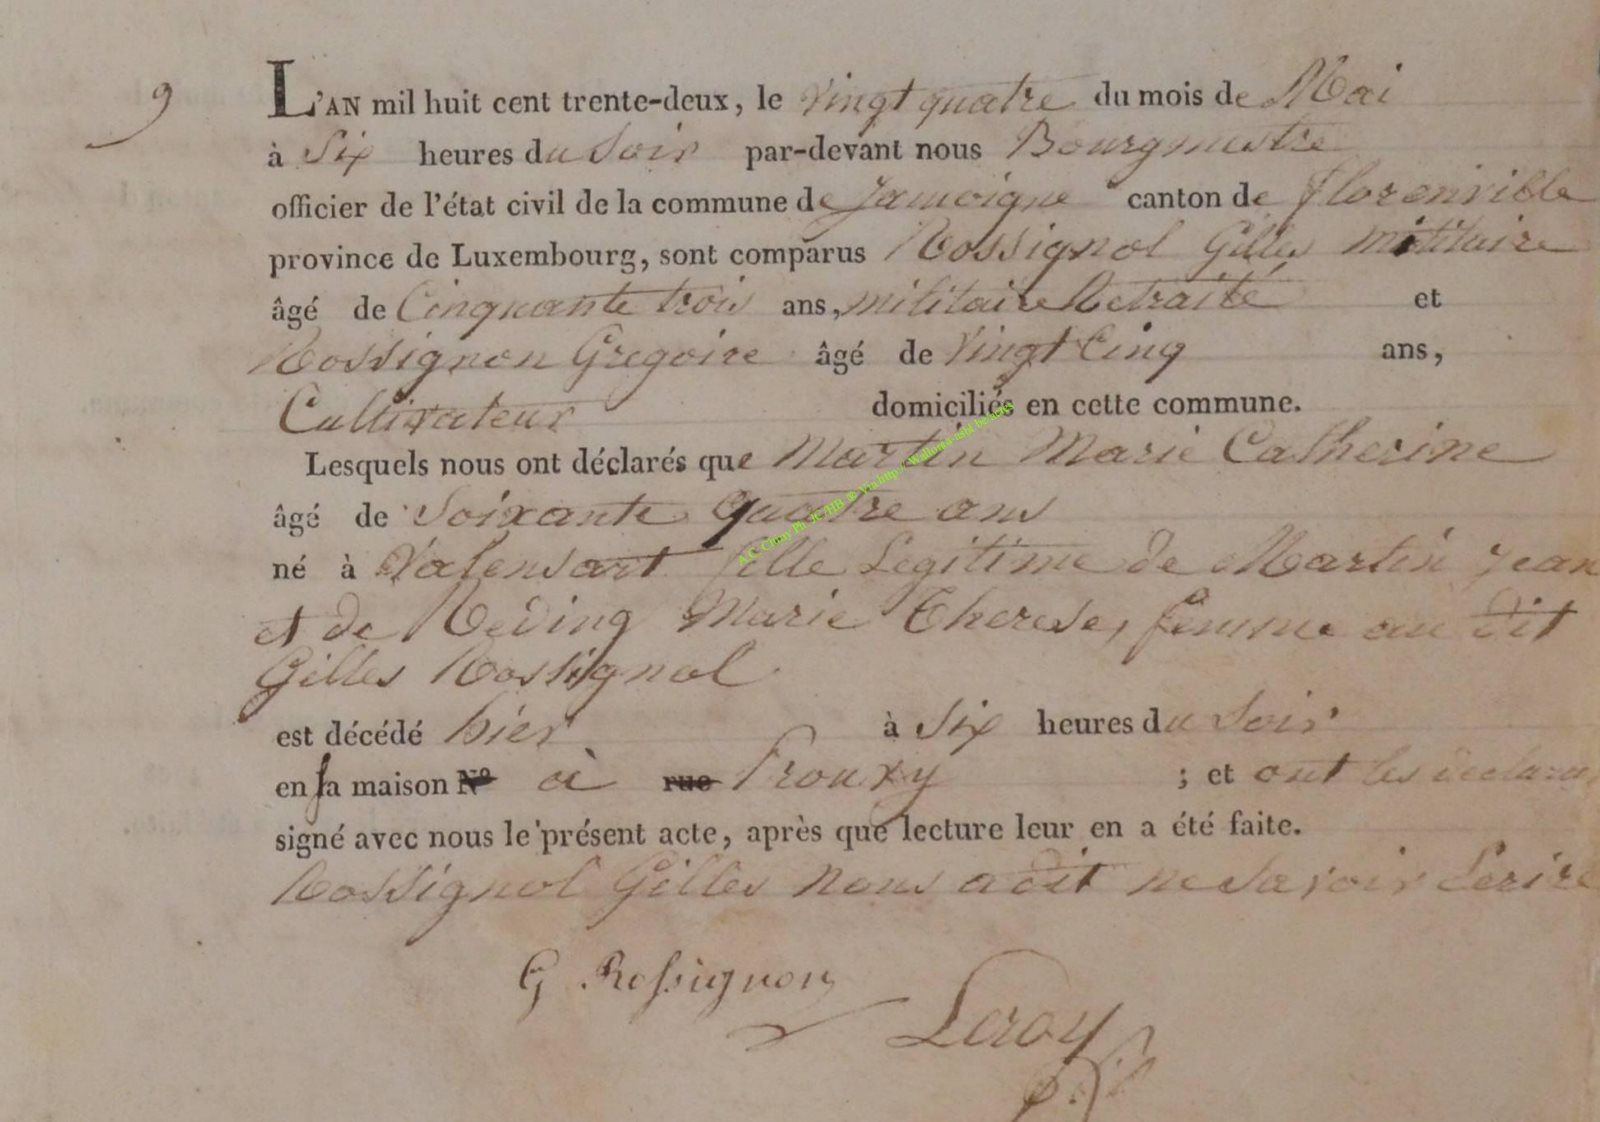 9
L'AN mil huit cent trente-deux, le vingt quatre du mois de Mai
à Six heures du Soir par-devant nous Bourgmestre
officier de l'état civil de la commune de Jamoigne canton de florenville
province de Luxembourg, sont comparus Rossignol Gilles militaire
âgé de Cinquante trois ans, militaire Retraité et
Rossignon Gregoire âgé de Vingt Cinq ans,
Cultivateur domiciliés en cette commune.
Lesquels nous ont déclarés que Martin Marie Catherine
âgé de Soixante quatre ans
né à Valensart fille Legitime de Martin Jean
et de Reding Marie Therese, femme au dit
Gilles Rossignol
est décédé hier à Six heures du Soir
en sa maison N° à rue Prouxy ; et ont les
signé avec nous le présent acte, après que lecture leur en a été faite.
Rossignol Gilles nous a dit ne Savoir Ecrire
G Rossignon
Leroy